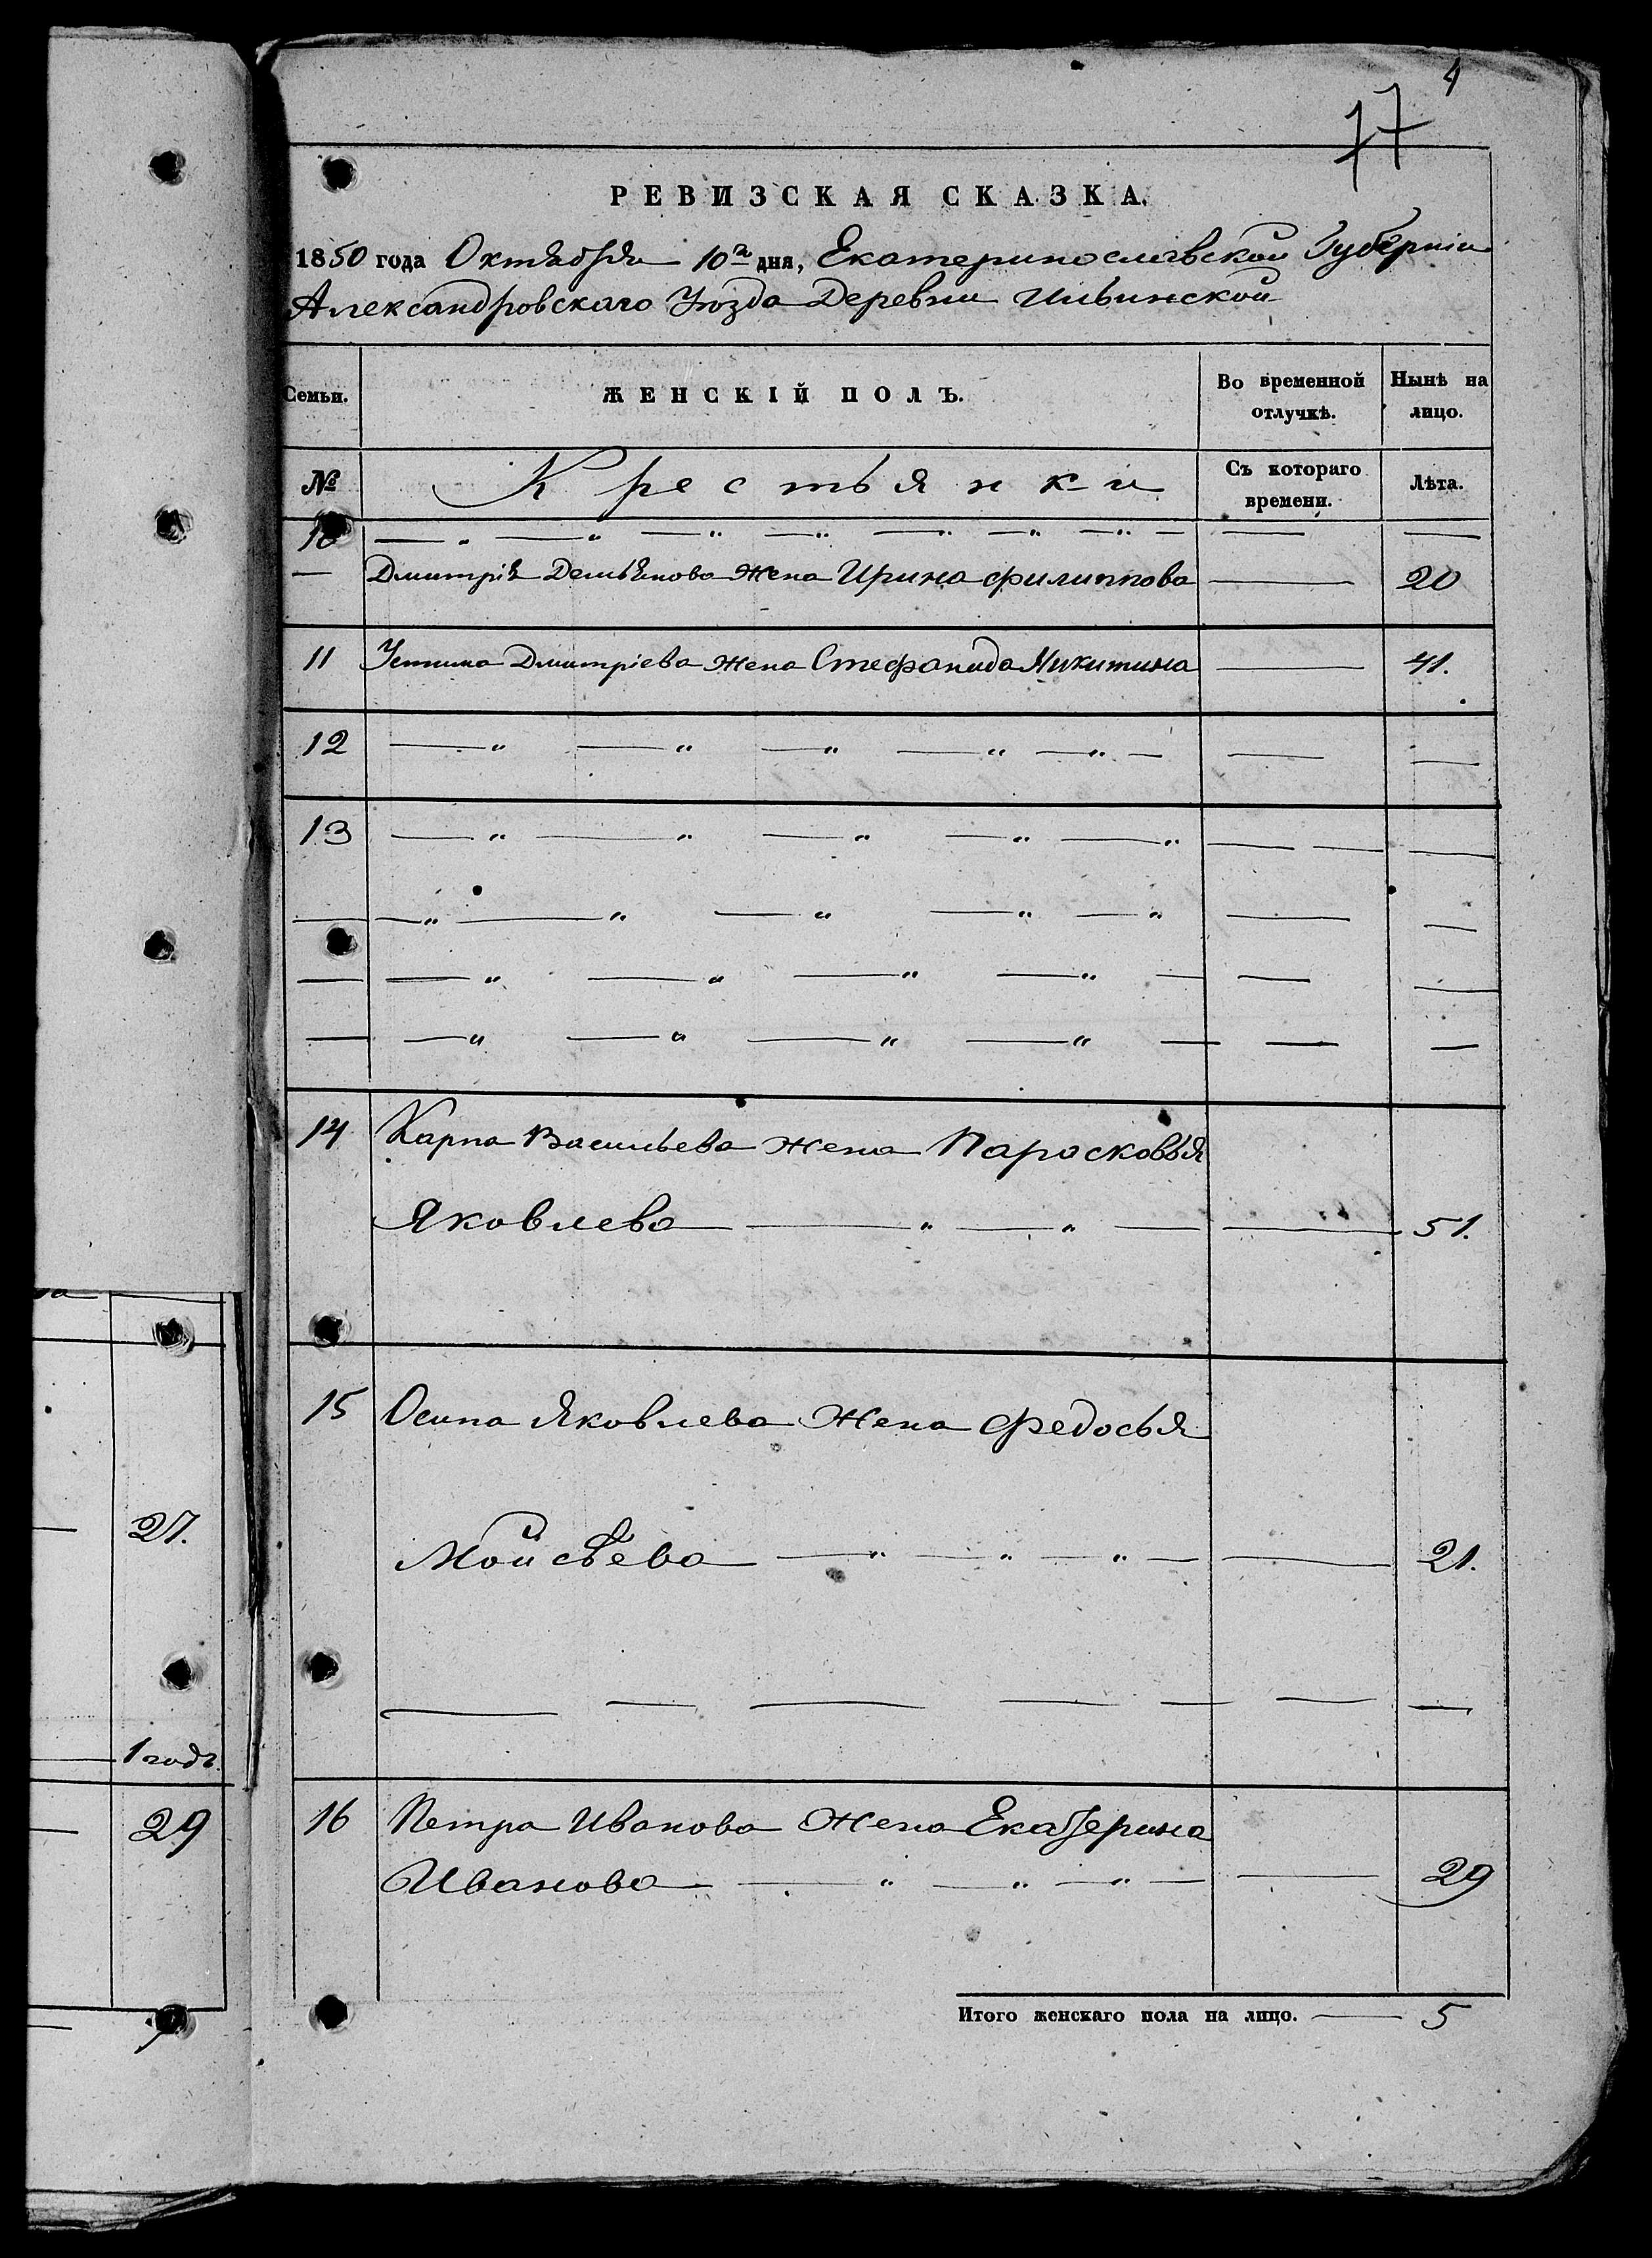 4
77
РЕВИЗСКАЯ СКАЗКА.
1850 года Октября 10го дня, Екатеринославской Губерніи
Александровскаго Уѣзда Деревни Ильинской
Семьи. ЖЕНСКІЙ ПОЛЪ. Во временной отлучкѣ. Нынѣ на лицо.
№ Крестьянки Съ котораго времени. Лѣта.
10 — „ — „ — „ — „ — „ — „ — „ — — —
— Дмитрія Демьянова жена Ирина Филиппова — 20
11 Устима Дмитріева жена Стефанида Никитина — 41.
12 — „ — „ — „ — „ — „ — — —
13 — „ — „ — „ — „ — „ — — —
— — „ — „ — „ — „ — „ — —
— — „ — „ — „ — „ — — —
— — „ — „ — „ — „ — — —
14 Карпа Васильева жена Парасковья
Яковлева — „ — „ — — 51.
15 Осипа Яковлева жена Федосья
Мойсѣева — „ — „ — „ — — 21.
— — — — — — —
16 Петра Иванова жена Екатерина
Иванова — „ — „ — „ — — 29
Итого женскаго пола на лицо. — 5
27.
1 годъ.
29